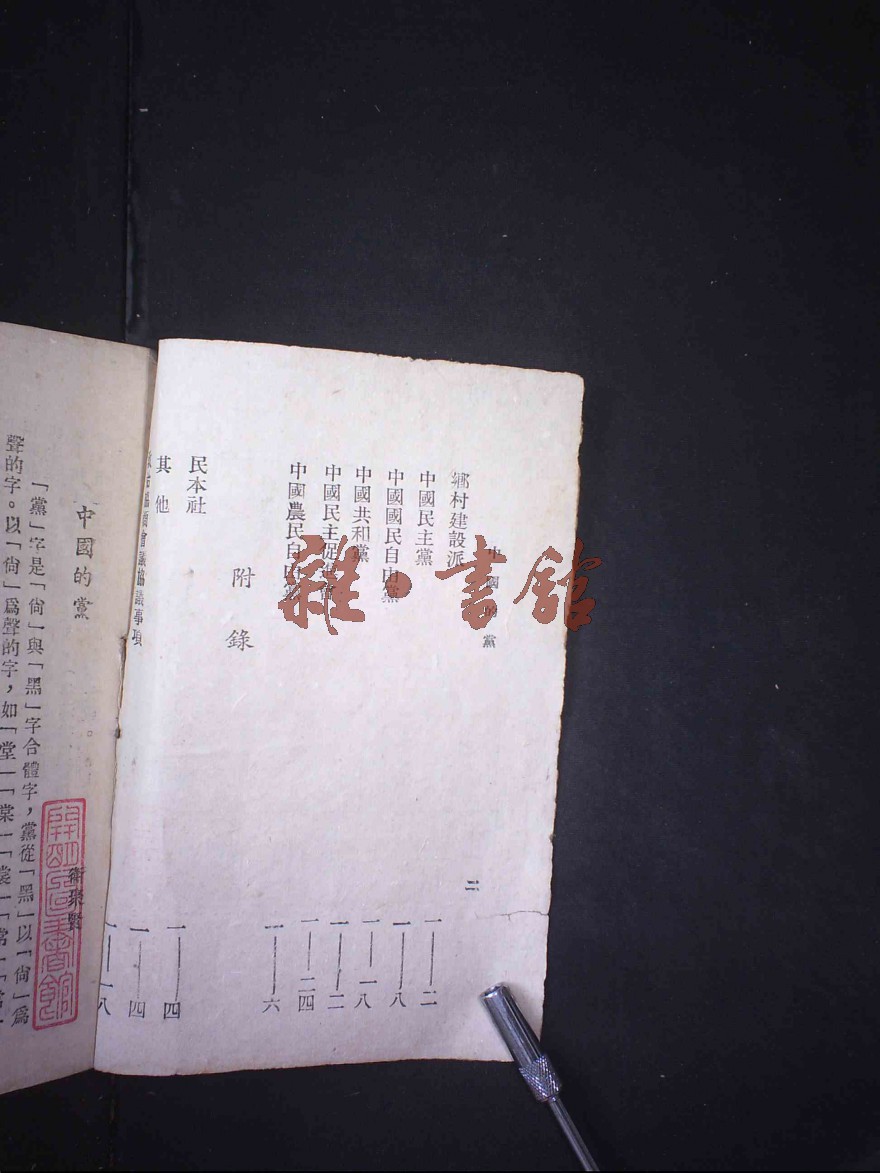 中國的黨
二
鄉村建設派 一——二
中國民主黨 一——八
中國國民自由黨 一——一八
中國共和黨 一——二
中國民主促進會 一——二四
中國農民自由黨 一——六
附錄
民本社 一——四
其他 一——四
會議協議事項 一——一八
中國的黨
衛聚賢
「黨」字是「尙」與「黑」字合體字，黨從「黑」以「尙」爲
聲的字。以「尙」爲聲的字，如「堂」「棠」「裳」「常」「
雜·書館